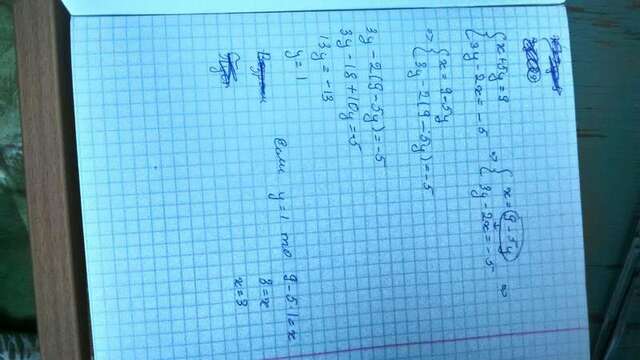 { x + 5y = 9
{ 3y - 2x = -5 ⇔ { x = 9 - 5y
{ 3y - 2x = -5 ⇔
⇔ { x = 9 - 5y
{ 3y - 2(9 - 5y) = -5
3y - 2(9 - 5y) = -5
3y - 18 + 10y = -5
13y = -13
y = 1
Если y = 1 то 9 - 5 · 1 = x